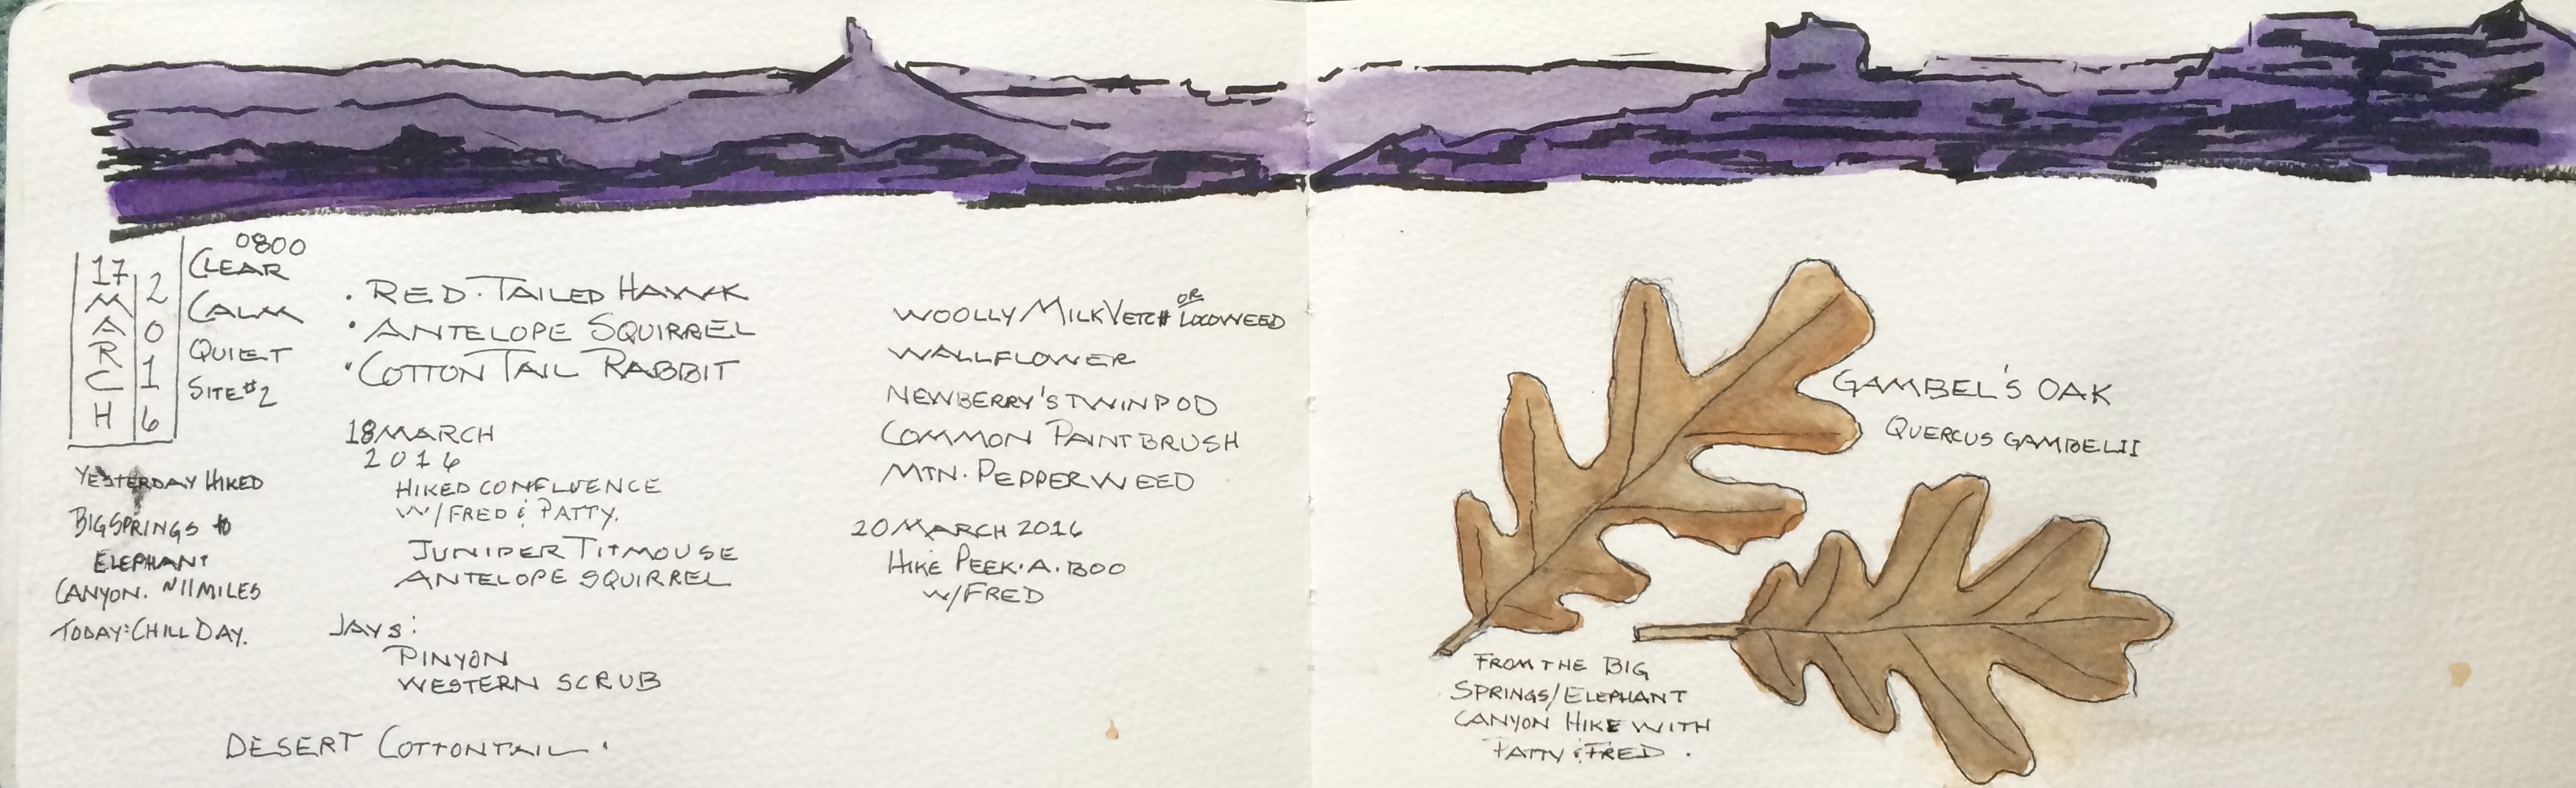 17 MARCH
2016
0800
CLEAR
CALM
QUIET
SITE #2
YESTERDAY HIKED
BIG SPRINGS to
ELEPHANT
CANYON. ~11 MILES
TODAY: CHILL DAY.
· RED·TAILED HAWK
· ANTELOPE SQUIRREL
· COTTON TAIL RABBIT
18 MARCH
2016
HIKED CONFLUENCE
W/FRED & PATTY.
JUNIPER TITMOUSE
ANTELOPE SQUIRREL
JAYS:
PINYON
WESTERN SCRUB
DESERT COTTONTAIL.
WOOLLY MILKVETCH OR LOCOWEED
WALLFLOWER
NEWBERRY'S TWINPOD
COMMON PAINTBRUSH
MTN. PEPPERWEED
20 MARCH 2016
HIKE PEEK·A·BOO
W/FRED
GAMBEL'S OAK
QUERCUS GAMBELII
FROM THE BIG
SPRINGS/ELEPHANT
CANYON HIKE WITH
PATTY & FRED.